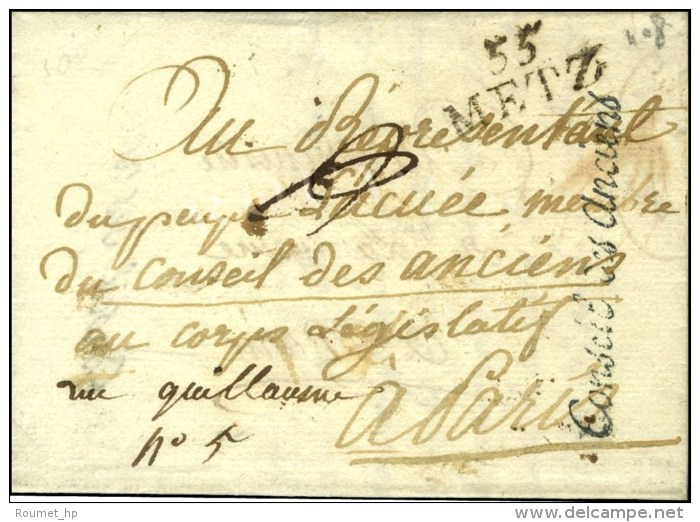 55
METZ
Au Représentant
du peuple Lacuée membre
du conseil des anciens
au corps Législatif
rue guillaume
n° 5
a Paris
Conseil des Anciens
© Roumet_hp
delcampe.net